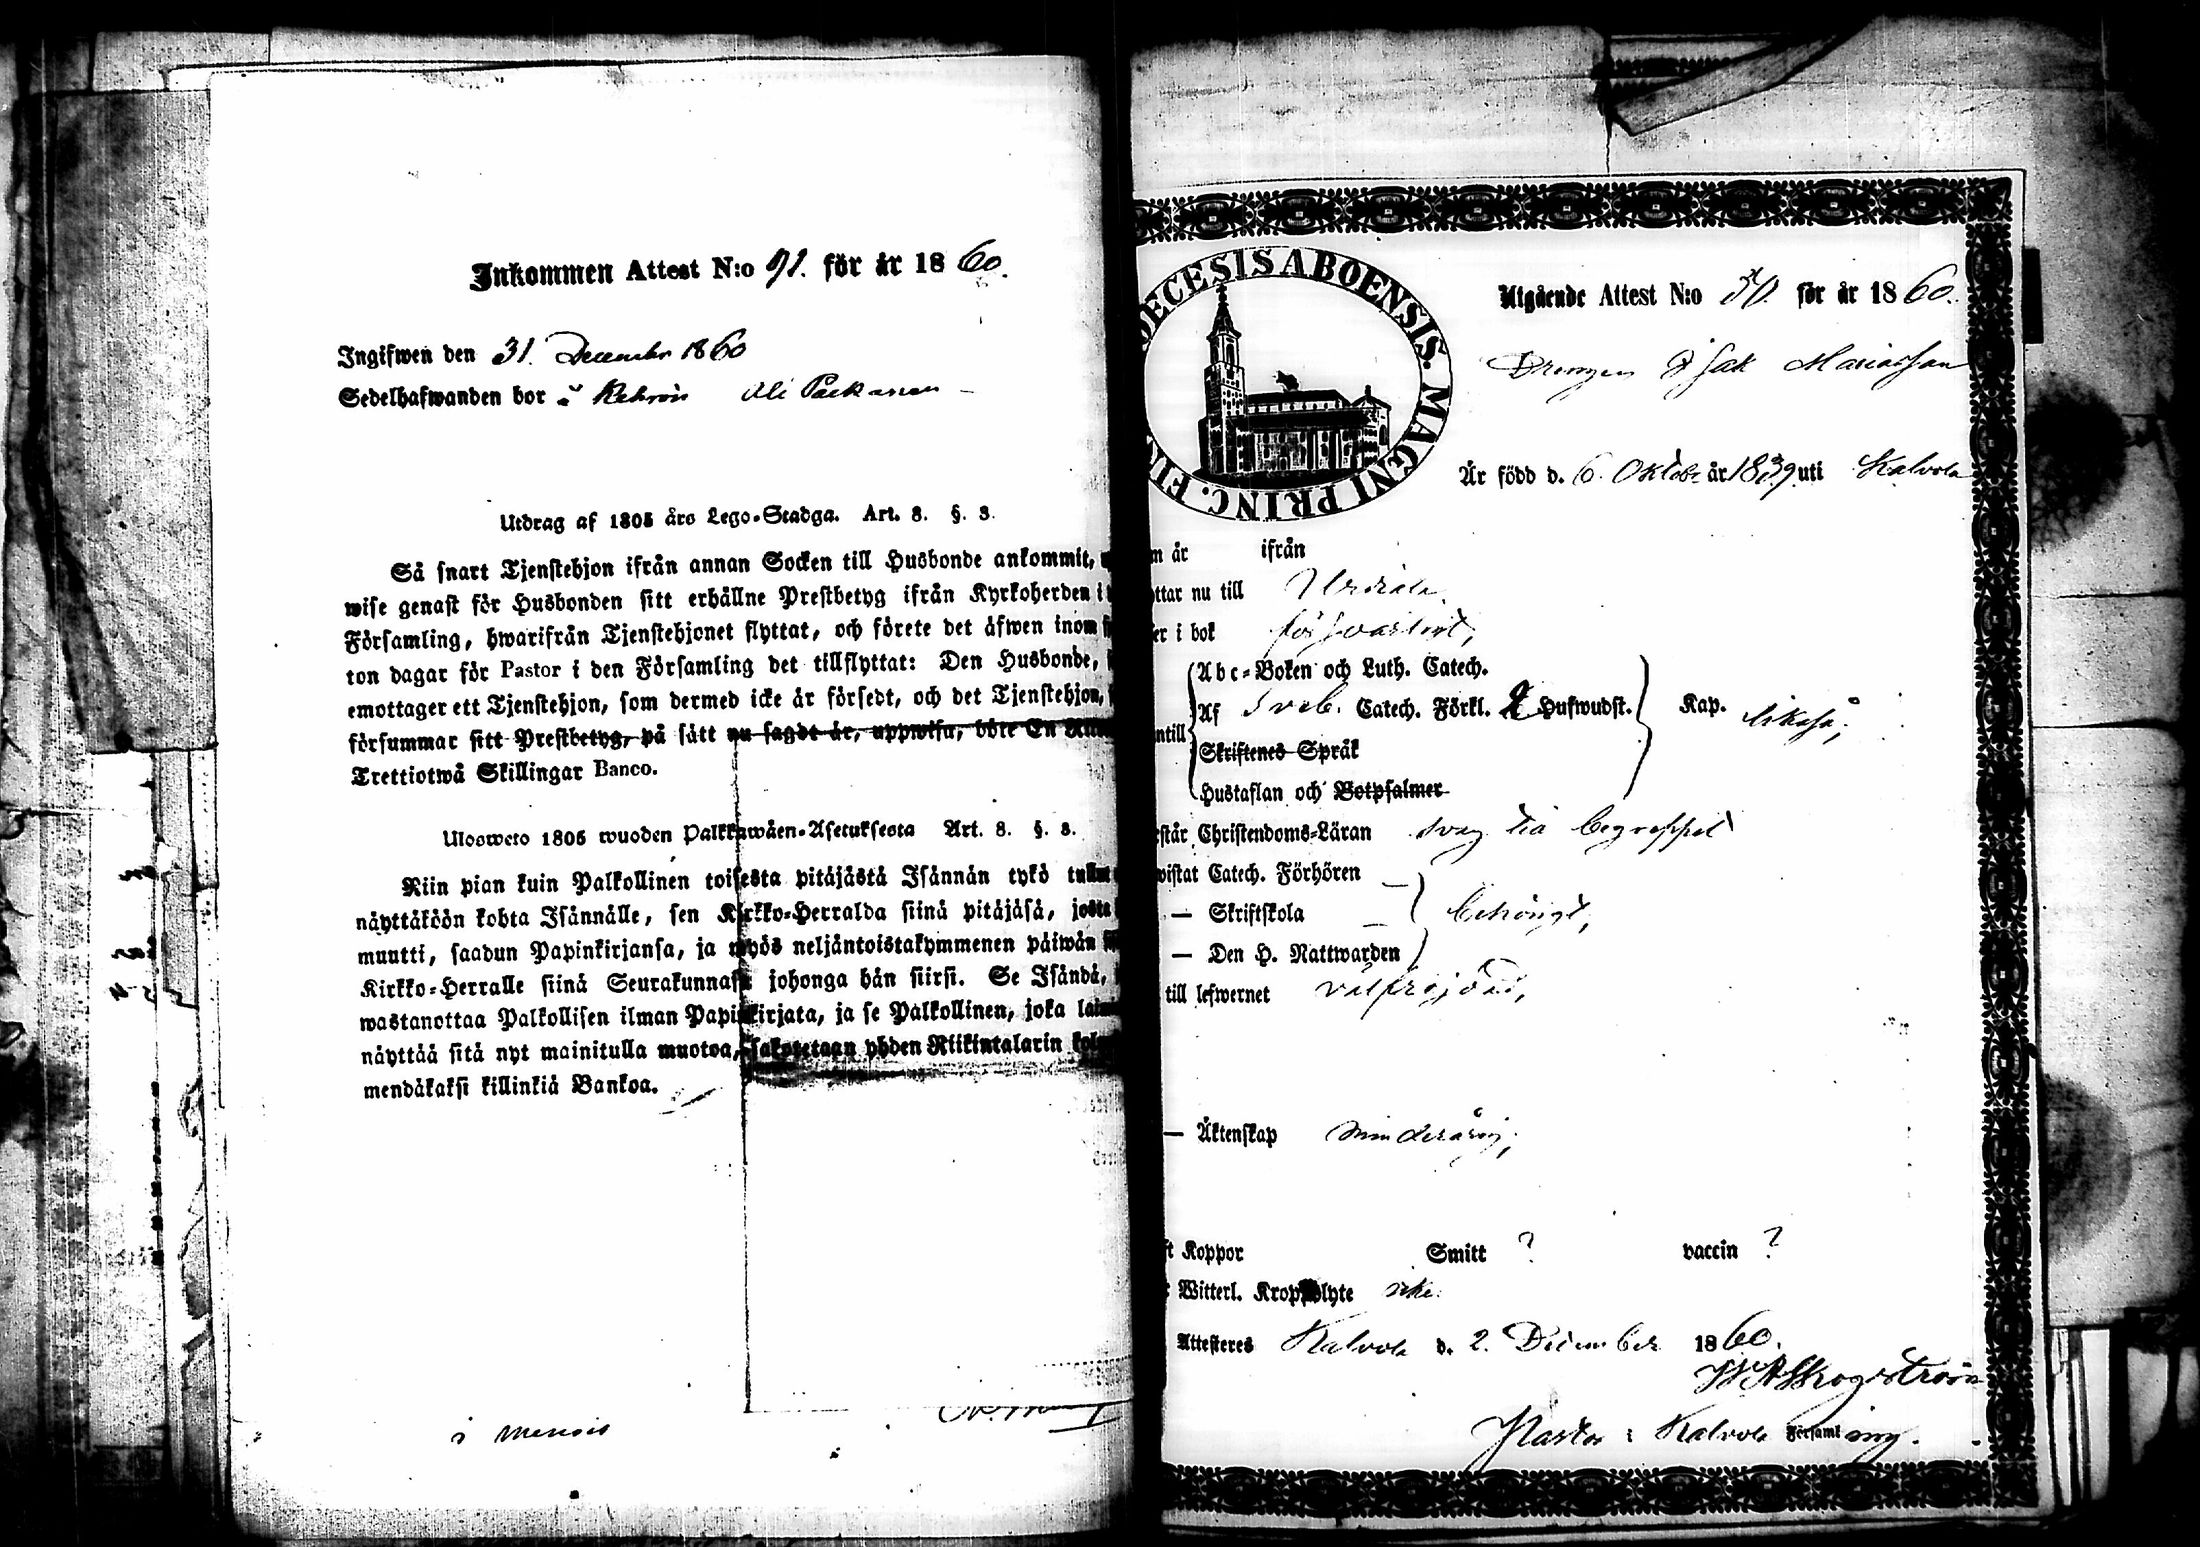 Inkommen Attest N:o 91. för år 1860.
Ingifwen den 31. December 1860
Sedelhafwanden bor i
Utdrag af 1805 års Lego-Stadga. Art. 8. §. 3.
Så snart Tjenstehjon ifrån annan Socken till Husbonde ankommit,
wise genast för Husbonden sitt erhållne Prestbetyg ifrån Kyrkoherden i
Församling, hwarifrån Tjenstehjonet flyttat, och förete det äfwen inom
ton dagar för Pastor i den Församling det tillflyttat: Den Husbonde,
emottager ett Tjenstehjon, som dermed icke är försedt, och det Tjenstehjon,
försummar sitt Prestbetyg, på sätt nu sagdt är, uppwisa, böte En
Trettiotwå Skillingar Banco.
Ulosweto 1805 wuoden Palkkawäen-Asetuksesta Art. 8. §. 3.
Niin pian kuin Palkollinen toisesta pitäjästä Isännän tykö
näyttäköön kohta Isännälle, sen Kirkko-Herralda siinä pitäjäsä, josta
muutti, saadun Papinkirjansa, ja myös neljäntoistakymmenen päiwän
Kirkko-Herralle siinä Seurakunnasa johonga hän siirsi. Se Isändä,
wastanottaa Palkollisen ilman Papinkirjata, ja se Palkollinen, joka
näyttää sitä nyt mainitulla muotoa, sakotetaan yhden Riikintalarin
mendäkaksi killinkiä Bankoa.
i
DECESIS ABOENSIS. MAGNI PRINC.
Utgående Attest N:o 50. för år 1860.
Drengen Isak Mariasson
Är född d. 6. Oktobr år 1839 uti Kalvola
m år ifrån
ttar nu till Urdiala.
er i bok försvarligt,
Abc-Boken och Luth. Catech.
Af Sveb. Catech. Förkl. 2 Hufwudst. Kap. likaså;
ntill
Skriftenes Språk
Hustaflan och Botpsalmer
står Christendoms-Läran svag till begreppet
wistat Catech. Förhören
— Skriftskola behörigt,
— Den H. Nattwarden
till lefwernet välfrejdad,
— Äktenskap minderårig;
ft Koppor Smitt ? vaccin ?
Witterl. Kroppslyte icke.
Attesteres Kalvola d. 2. December 1860.
Skogström
Pastor i Kalvola Församling.